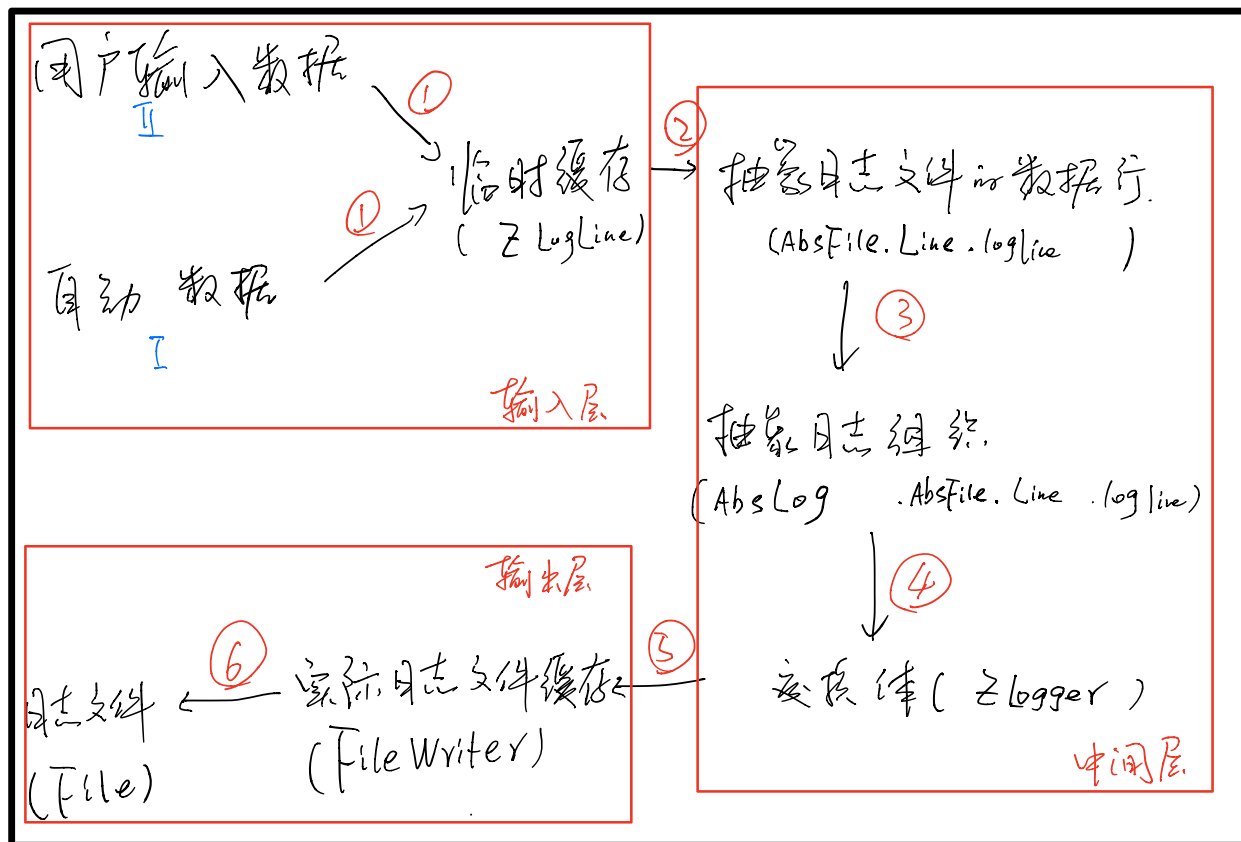 用户输入数据
II
①
临时缓存
( ZLogLine)
①
自动数据
I
输入层
②
抽象日志文件的数据行.
(AbsFile.Line.logline )
③
抽象日志组织
(AbsLog .AbsFile.Line .logline)
④
(ZLogger)
中间层
⑤
输出层
实际日志文件缓存
(FileWriter)
⑥
日志文件
(File)